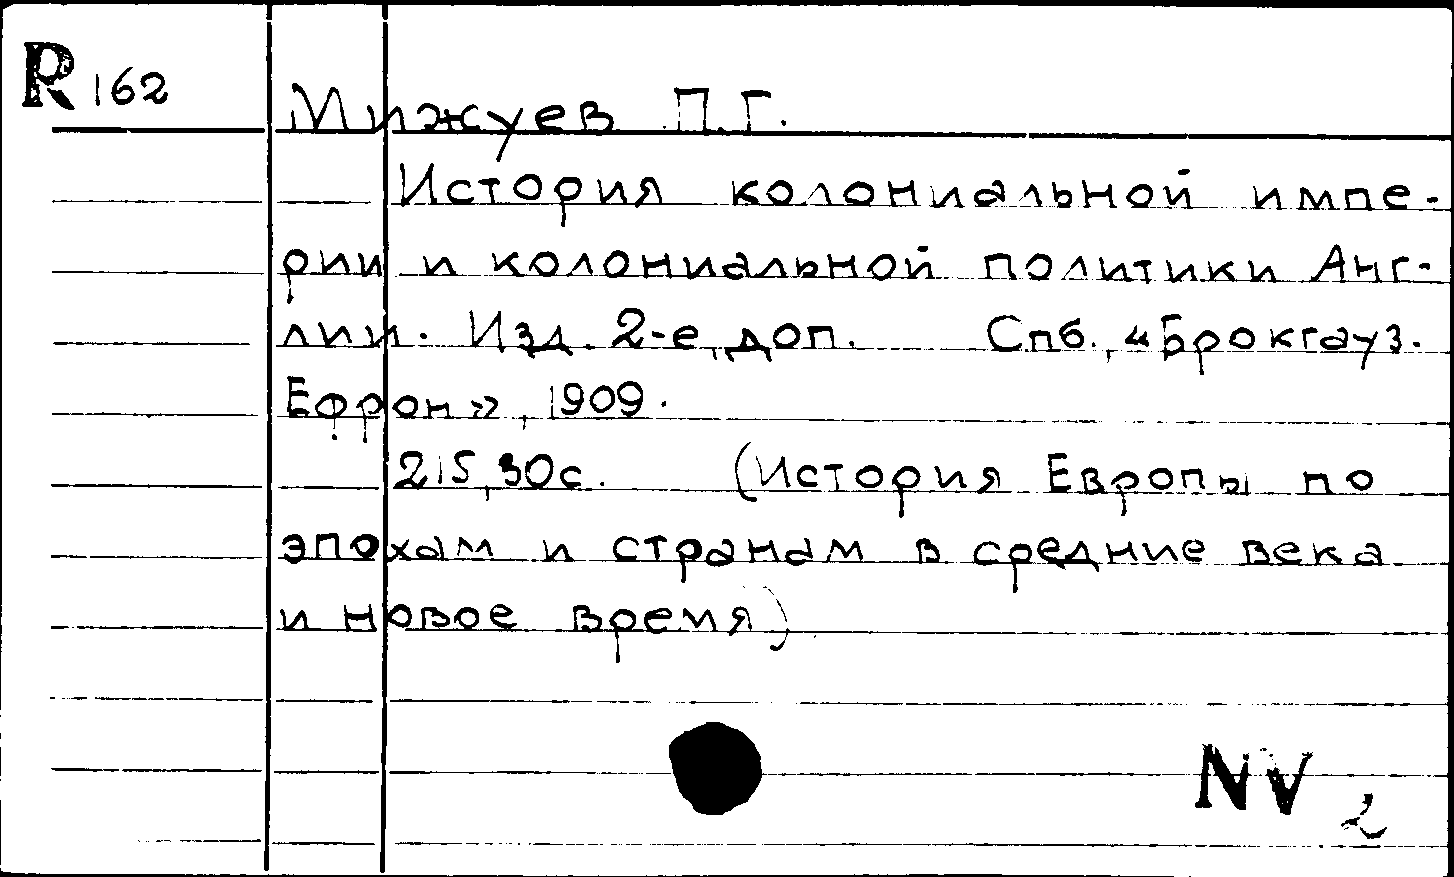 R 162
Мижуев П.Г.
История колониальной импе-
рии и колониальной политики Анг-
лии. Изд. 2-е, доп. Спб., «Брокгауз.
Ефрон», 1909.
215,30с. (История Европы по
эпохам и странам в средние века
и новое время)
NV 2